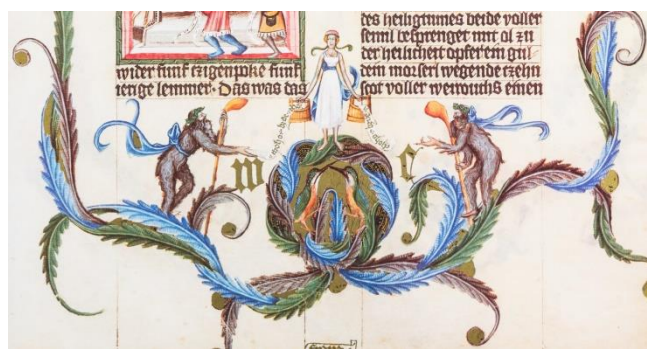 wider funf tzigenpoke funf
ierige lemmer. Das was das
des heiligtumes beide voller
semil besprenget mit ol zu
der heilicheit opfer ein gul
dein morserl wegende tzehn
scot voller weirouchs einen
w e